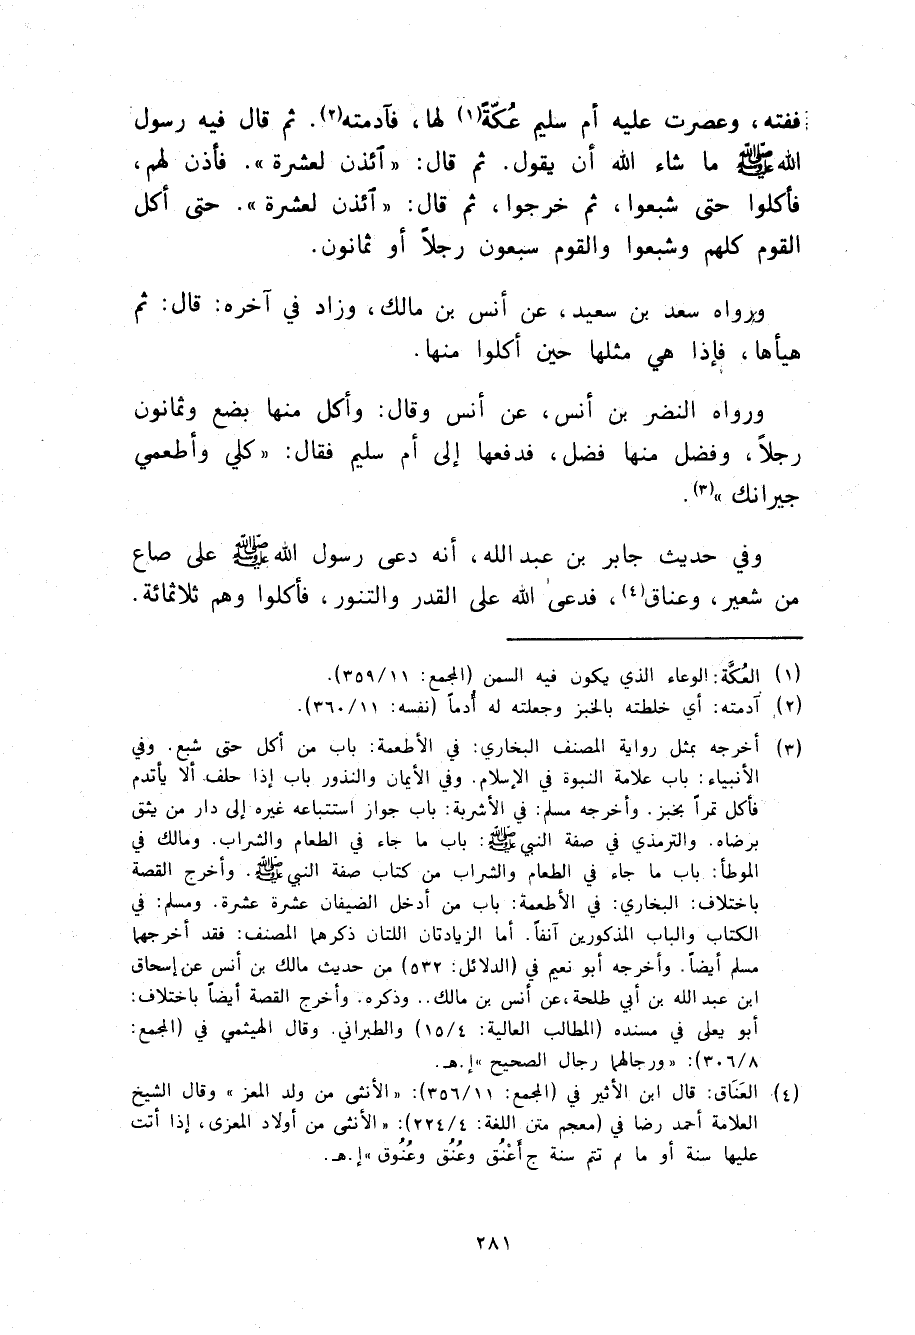 ففته، وعصرت عليه أم سليم عُكّةً(١) لها، فآدمته(٢). ثم قال فيه رسول
الله ﷺ ما شاء الله أن يقول. ثم قال: «آئذن لعشرة». فأذن لهم،
فأكلوا حتى شبعوا، ثم خرجوا، ثم قال: «آئذن لعشرة». حتى أكل
القوم كلهم وشبعوا والقوم سبعون رجلاً أو ثمانون.
ورواه سعد بن سعيد، عن أنس بن مالك، وزاد في آخره: قال: ثم
هيأها، فإذا هي مثلها حين أكلوا منها.
ورواه النضر بن أنس، عن أنس وقال: وأكل منها بضع وثمانون
رجلاً، وفضل منها فضل، فدفعها إلى أم سليم فقال: «كلي وأطعمي
جيرانك»(٣).
وفي حديث جابر بن عبد الله، أنه دعى رسول الله ﷺ على صاع
من شعير، وعناق(٤)، فدعى الله على القدر والتنور، فأكلوا وهم ثلاثمائة.
(١) العُكَّة: الوعاء الذي يكون فيه السمن (المجمع: ٣٥٩/١١).
(٢) آدمته: أي خلطته بالخبز وجعلته له أُدماً (نفسه: ٣٦٠/١١).
(٣) أخرجه بمثل رواية المصنف البخاري: في الأطعمة: باب من أكل حتى شبع. وفي
الأنبياء: باب علامة النبوة في الإسلام. وفي الأيمان والنذور باب إذا حلف ألا يأتدم
فأكل تمراً بخبز. وأخرجه مسلم: في الأشربة: باب جواز استتباعه غيره إلى دار من يثق
برضاه. والترمذي في صفة النبي ﷺ: باب ما جاء في الطعام والشراب. ومالك في
الموطأ: باب ما جاء في الطعام والشراب من كتاب صفة النبي ﷺ. وأخرج القصة
باختلاف: البخاري: في الأطعمة: باب من أدخل الضيفان عشرة عشرة. ومسلم: في
الكتاب والباب المذكورين آنفاً. أما الزيادتان اللتان ذكرهما المصنف: فقد أخرجهما
مسلم أيضاً. وأخرجه أبو نعيم في (الدلائل: ٥٣٢) من حديث مالك بن أنس عن إسحاق
ابن عبد الله بن أبي طلحة، عن أنس بن مالك.. وذكره. وأخرج القصة أيضاً باختلاف:
أبو يعلى في مسنده (المطالب العالية: ١٥/٤) والطبراني. وقال الهيثمي في (المجمع:
٣٠٦/٨): «ورجالهما رجال الصحيح» إ.هـ.
(٤) العَنَاق: قال ابن الأثير في (المجمع: ٣٥٦/١١): «الأنثى من ولد المعز» وقال الشيخ
العلامة أحمد رضا في (معجم متن اللغة: ٢٢٤/٤): «الأنثى من أولاد المعزى، إذا أتت
عليها سنة أو ما لم تتم سنة ج أَعْنُق وعُنُق وعُنُوق» إ.هـ.
٢٨١